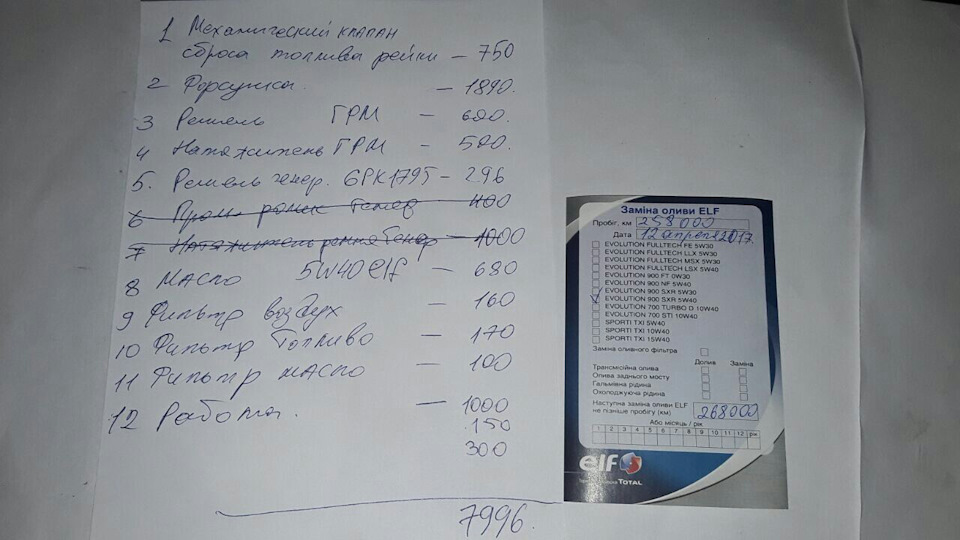 1 Механический клапан
сброса топлива рейки – 750
2 Форсунки. – 1890.
3 Ремень ГРМ – 600.
4 Натяжитель ГРМ – 500.
5. Ремень генер. 6PK1795 – 296
6 Пром. ролик Генер 400
7 Натяжитель ремня Генер – 1000
8 Масло 5W40 elf – 680
9 Фильтр воздух – 160
10 Фильтр Топливо – 170
11 Фильтр масло – 100
12 Работа. – 1000
.150
300
7996.
Заміна оливи ELF
Пробіг, км 258000
Дата 12 апреля 2017.
EVOLUTION FULLTECH FE 5W30
EVOLUTION FULLTECH LLX 5W30
EVOLUTION FULLTECH MSX 5W30
EVOLUTION FULLTECH LSX 5W40
EVOLUTION 900 FT 0W30
EVOLUTION 900 NF 5W40
EVOLUTION 900 SXR 5W30
EVOLUTION 900 SXR 5W40
EVOLUTION 700 TURBO D 10W40
EVOLUTION 700 STI 10W40
SPORTI TXI 5W40
SPORTI TXI 10W40
SPORTI TXI 15W40
Заміна оливного фільтра
Долив Заміна
Трансмісійна олива
Олива заднього мосту
Гальмівна рідина
Охолоджуюча рідина
Наступна заміна оливи ELF
не пізніше пробігу (км) 268000
Або місяць / рік
1 2 3 4 5 6 7 8 9 10 11 12 рік
elf
TOTAL